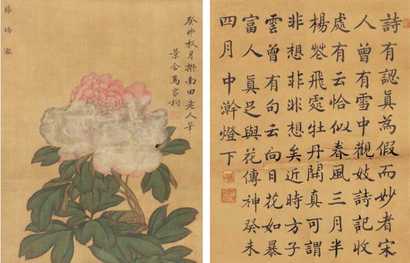 癸卯秋月橅南田老人筆
景含馬家桐
詩有認真為假而妙者宋
人曾有雪中觀妓詩記收
處有云恰似春風三月半
楊花飛處牡丹開真可謂
非想非非想矣近時方子
雲曾有句云向日花如暴
富人真足與花傳神癸未
四月中澣燈下